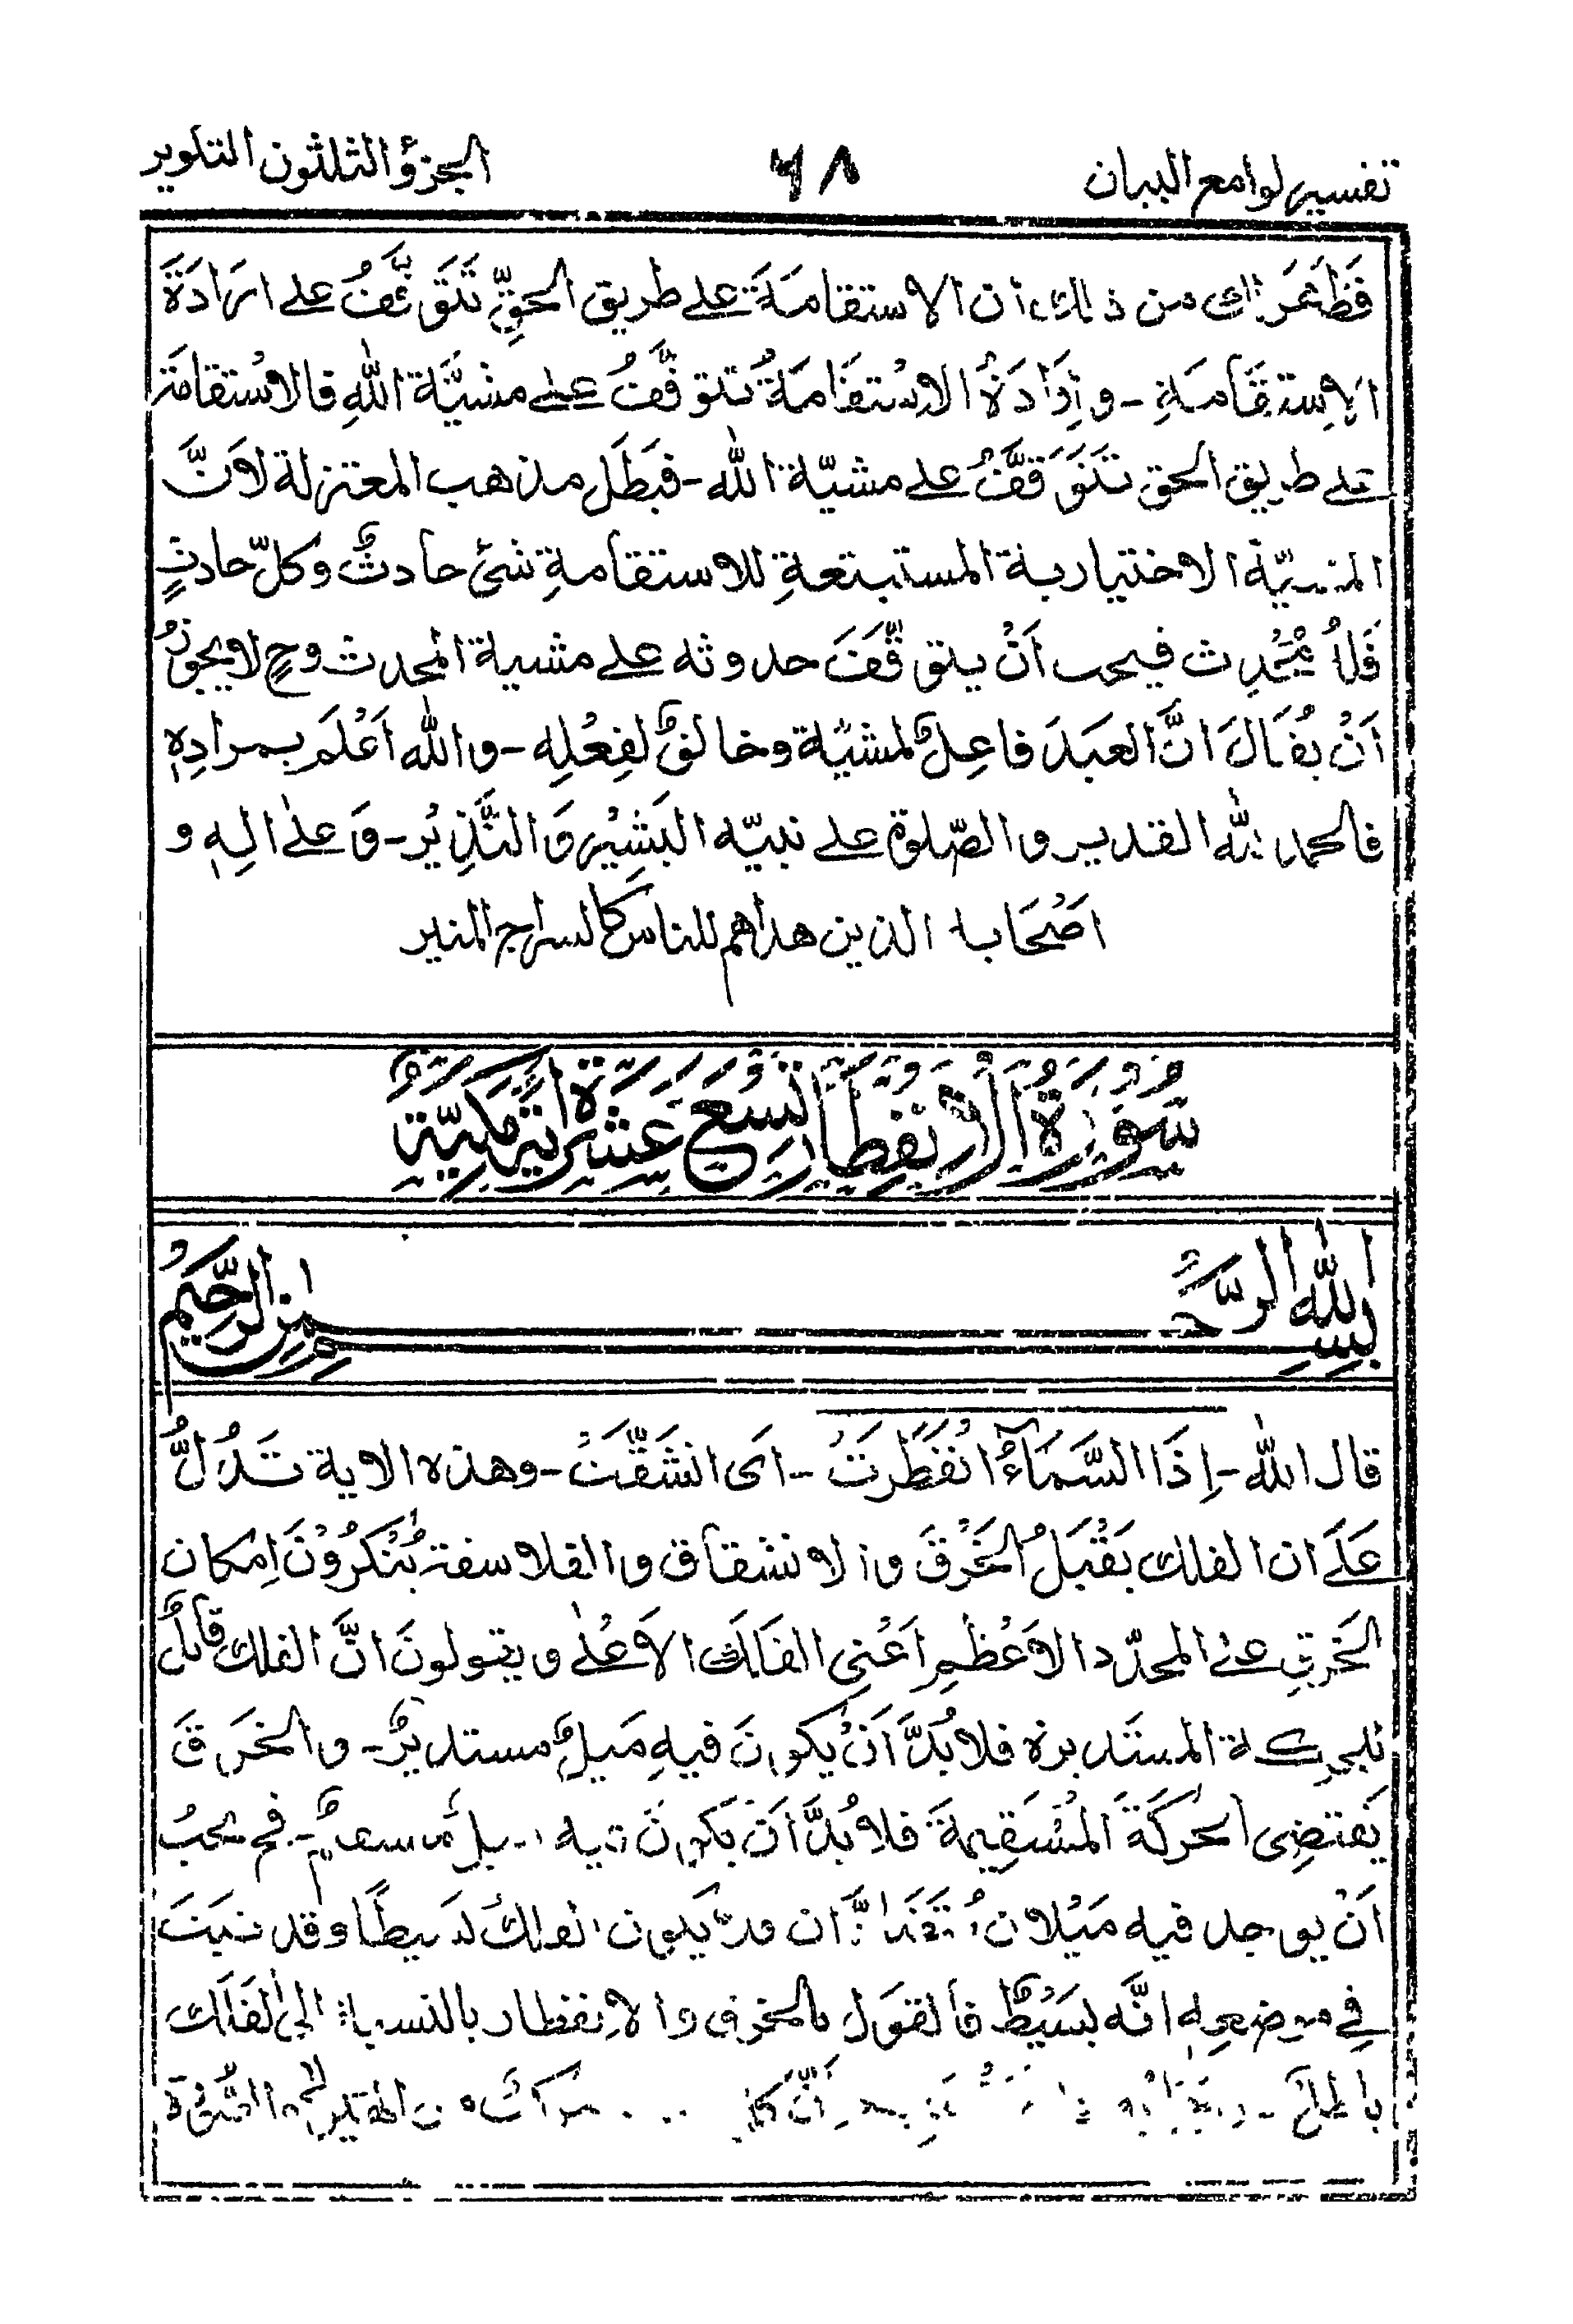 تفسير لوامع البيان ٦٨ الجزؤ الثلثون التكوير
فَظَهَرَ لك من ذلك ان الاستقامَةَ على طريق الحقِّ تَتَوَقَّفُ على ارَادَةِ
الاِستقَامَةِ - و اِرَادَةُ الاِسْتقَامَةِ تتوقَّفُ على مشيَّة اللهِ فالاسْتقامَة
على طريق الحق تَتَوَقَّفُ على مشيّة الله - فبَطَلَ مذهب المعتزلة لاَنَّ
المشيّة الاختيارية المستتبعةِ للاستقامةِ شئ حادثٌ وكلّ حادثٍ
فَلَهُ مُحْدِث فيجب اَنْ يتوقّفَ حدوثه على مشية المحدث وحٍ لا يجوزُ
اَنْ يُقَالَ انَّ العبَدَ فاعِلٌ لمشيّة وخالقٌ لفِعْلِه - والله اَعْلَم بمرادِهٖ
فالحمد لله القدير والصّلوة على نبيّه البَشِيْرِ وَالنَّذِيْر - وَعلىٰ الِهٖ و
اَصْحَابه الذين هداهم للناس كالسراج المنير
سُوْرَةُ الْاِنْفِطَارِ تِسْعَ عَشَرَةَ اٰيَة مَكِّيَّةٌ
بِسْمِ اللهِ الرَّحْمٰنِ الرَّحِيْمِ
قال الله - اِذَا السَّمَآءُ انْفَطَرَتْ - اَى انشَقَّتْ - وهذه الاية تَدُلُّ
عَلَى ان الفلك يَقْبَلُ الخَرْقَ والانشقاق والفلاسفة يُنْكِرُوْنَ اِمكان
الخَرْقِ على المحدّد الاَعْظَمِ اَعْنِى الفَلَكَ الاَعْلىٰ ويقولونَ انَّ الفلك قابلٌ
للحركة المستَديرة فلا بُدَّ اَنْ يكونَ فيهِ مَيلٌ مستديرٌ - والخَرقَ
يَقتضِى الحَركَةَ المُسْتَقِيمةَ فلا بُدَّ اَنْ يكونَ فيه ميلٌ مستقيمٌ - فح يجبُ
اَنْ يوجد فيه مَيْلان مع ان الفلك بَسِيطًا وقد ثبَتَ
فِى موضعِهٖ انَّه بسَيْطٌ فالقول بالخرق والاِنفطار بالنسبة الى الفَلَك